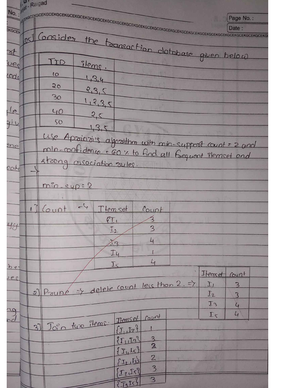 Page No :
Date :
Consider the transaction database given below:
TID Items
10 1,3,4
20 2,3,5
30 1,2,3,5
40 2,5
50 1,3,5
Use Apriori algorithm with min-support count = 2 and
min-confidence = 60% to find all frequent itemset and
strong association rules.
→
min-sup = 2
1) Count Itemset Count
I1 3
I2 3
I3 4
I4 1
I5 4
2) Prune ⇒ delete count less than 2 ⇒
Itemset Count
I1 3
I2 3
I3 4
I5 4
3) Join two items
Itemset Count
{I1,I2} 1
{I1,I3} 3
2
2
3
3